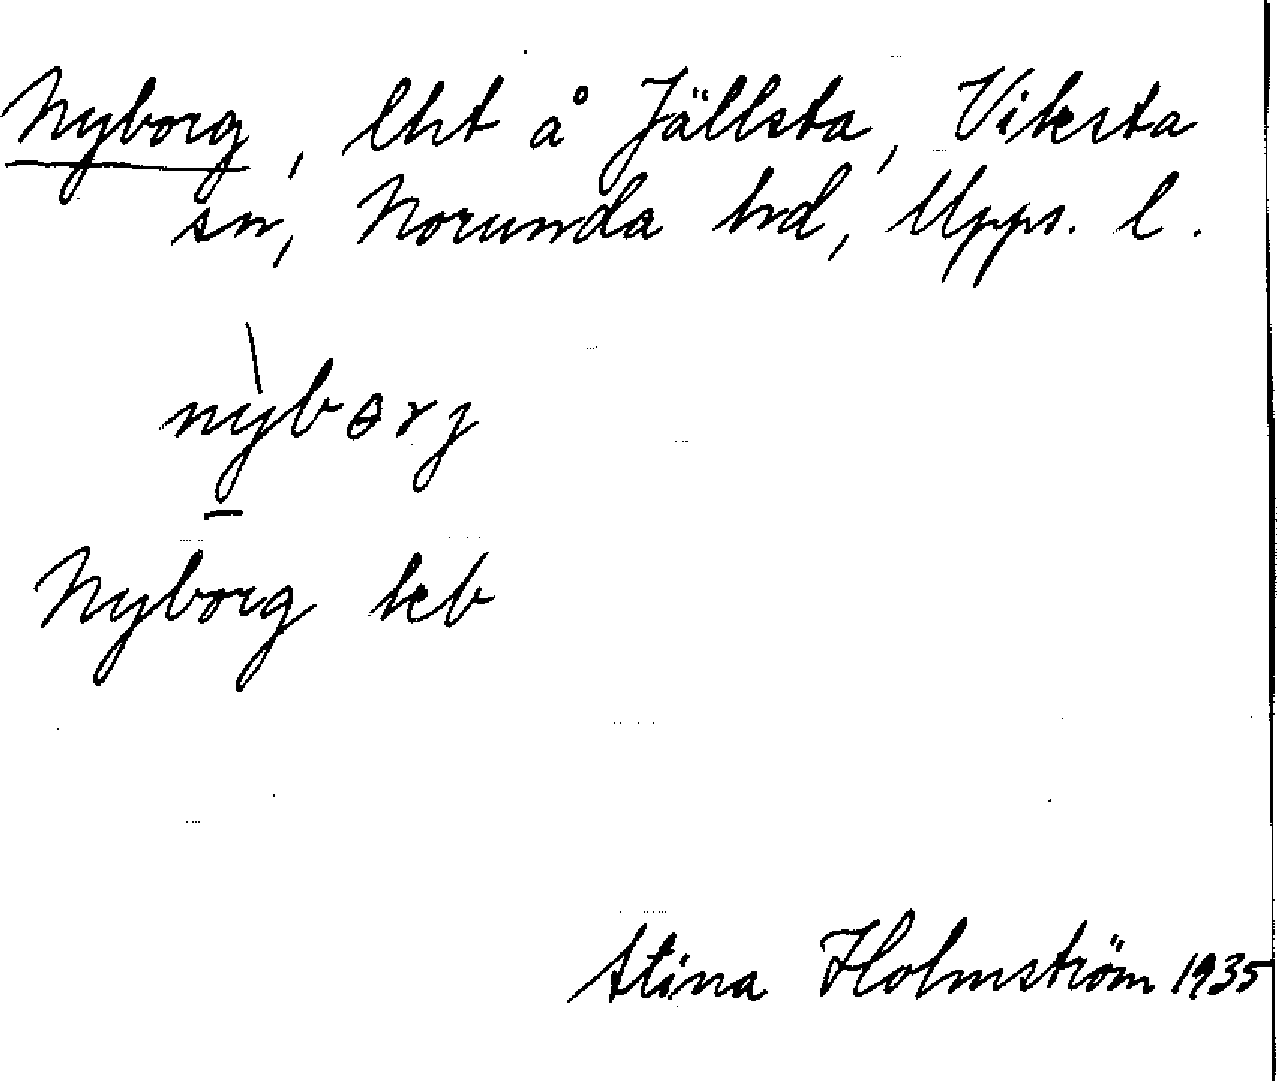 Nyborg, lht å Jällsta, Viksta
sn, Norunda hd, Upps. l.
nỳbɵrj
Nyborg kb
Stina Holmström 1935